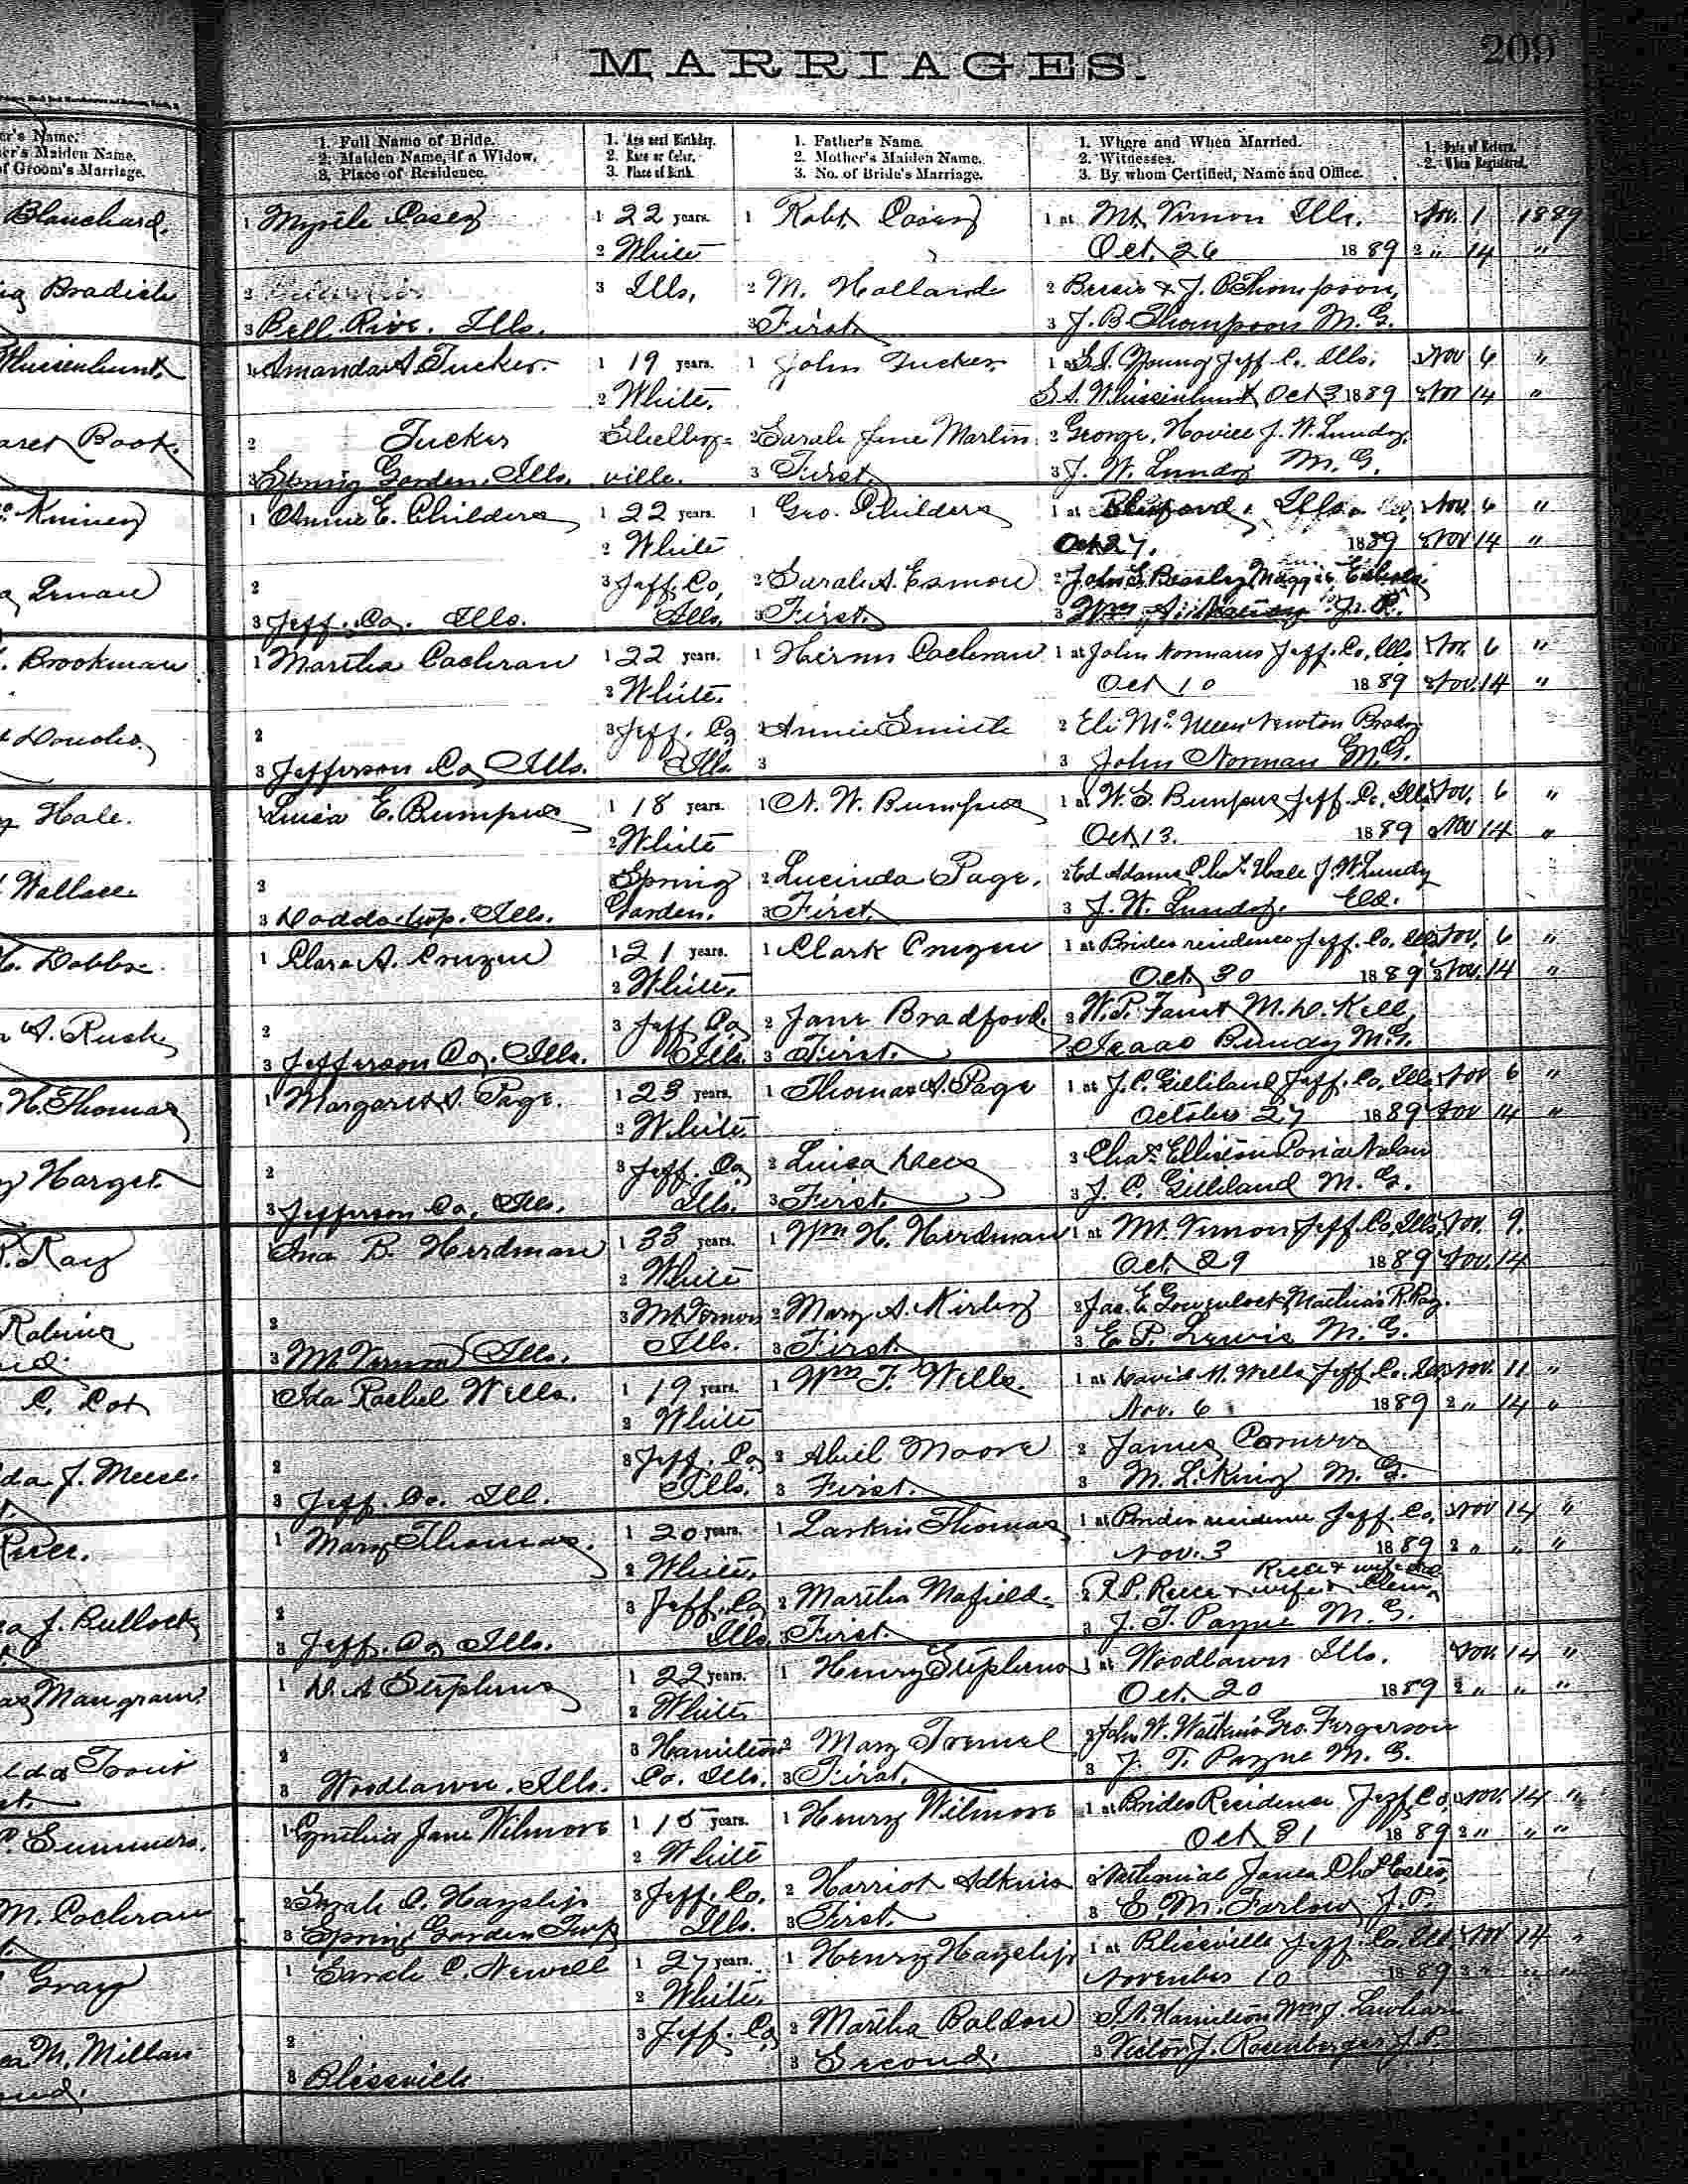 MARRIAGES.
209
er's Name.
er's Maiden Name.
of Groom's Marriage.
1. Full Name of Bride.
2. Maiden Name, if a Widow.
3. Place of Residence.
1. Age next Birthday.
2. Race or Color.
3. Place of Birth.
1. Father's Name.
2. Mother's Maiden Name.
3. No. of Bride's Marriage.
1. Where and When Married.
2. Witnesses.
3. By whom Certified, Name and Office.
1. Date of Return.
2. When Registered.
Blanchard.
1 Myrtle Casey 1 22 years. 1 Robt. Casey 1 at Mt. Vernon Ills. Nov. 1 1889
2 White Oct. 26 1889 2 " 14 "
Bradich
2 3 Ills, 2 M. Holland 2 Bessie & J. B. Thompson,
3 Bell Rive. Ills. 3 First. 3 J. B. Thompson M. G.
Whissenhunt
1 Amanda A. Tucker. 1 19 years. 1 John Tucker. 1 at G. S. Young Jeff. Co. Ills. Nov 6 "
2 White. S. A. Whissenhunt Oct 3 1889 2 Nov 14 "
aret Book.
2 Tucker Shelby- 2 Sarah Jane Martin 2 George, Novice J. W. Lundy.
3 Spring Garden. Ills. ville. 3 First. 3 J. W. Lundy M. G.
Kinney
1 Annie E. Childers 1 22 years. 1 Geo. Childers 1 at Bluford, Ills. Nov. 6 "
2 White Oct 27. 1889 2 Nov 14 "
2 3 Jeff. Co, 2 Sarah A. Esmon 2 John S. Beasley Maggie
3 Jeff. Co. Ills. Ills. 3 First. 3 Wm A. J. P.
Brookman
1 Martha Cochran 1 22 years. 1 Hiram Cochran 1 at John Normans Jeff. Co, Ills Nov. 6 "
2 White. Oct 10 1889 2 Nov. 14 "
2 3 Jeff. Co, 2 Annie Smith 2 Eli Newton Brady
3 Jefferson Co, Ills. Ills. 3 3 John Norman M. G.
Hale.
1 Luisa E. Bumpus 1 18 years. 1 N. W. Bumpus 1 at W. S. Bumpus Jeff. Co. Ills. Nov. 6 "
2 White Oct 13. 1889 2 Nov 14 "
Wallace
2 3 Spring 2 Lucinda Page. 2 Ed Adams Chas. Hale J. W. Lundy
3 Dodds. top. Ills. Garden. 3 First. 3 J. W. Lundy. Eld.
Dobbs
1 Clara A. Cruzen 1 21 years. 1 Clark Cruzen 1 at Brides residence Jeff. Co. Ills Nov. 6 "
2 White. Oct. 30 1889 2 Nov. 14 "
A. Rush
2 3 Jeff. Co, 2 Jane Bradford. 2 W. P. M. D. Kell,
3 Jefferson Co, Ills. Ills. 3 First. 3 Isaac Bundy M. G.
H. Thomas
1 Margaret S. Page. 1 23 years. 1 Thomas A. Page 1 at J. C. Gilliland Jeff. Co, Ills Nov 6 "
2 White October 27 1889 Nov 14 "
Harget.
2 3 Jeff. Co, 2 Luisa Dees 2 Chas. Ellison
3 Jefferson Co, Ills. Ills. 3 First. 3 J. C. Gilliland M. G.
R. Ray
Ina B. Herdman 1 33 years. 1 Wm H. Herdman 1 at Mt. Vernon Jeff. Co, Ills. Nov. 9.
2 White Oct. 29 1889 Nov. 14
2 3 Mt. Vernon 2 Mary A. Kirby 2 Jas. E. Gowenlock Mathias R. Ray.
3 Mt. Vernon Ills. Ills. 3 First 3 E. P. Lewis M. G.
C. Cox
1 Ida Rachel Wells. 1 19 years. 1 Wm F. Wells. 1 at David M. Wells Jeff. Co. Ills Nov. 11 "
2 White Nov. 6 1889 2 " 14 "
da J. Meese.
2 3 Jeff. Co, 2 Abiel Moore 2 James Conners
3 Jeff. Co. Ill. Ills. 3 First. 3 M. L. King M. G.
1 Mary Thomas. 1 20 years. 1 Larkin Thomas 1 at Brides residence Jeff. Co, Nov 14 "
2 White. Nov. 3 1889 2 " " "
J. Bullock
2 3 Jeff. Co, 2 Martha Mafield. 2 R. P. Reece & wife &
3 Jeff. Co, Ills. Ills 3 First. 3 J. T. Payne M. G.
Mangrum.
1 D. A. Stephens 1 22 years. 1 Henry Stephens 1 at Woodlawn Ills. Nov. 14 "
2 White. Oct. 20 1889 2 " " "
Trout
2 3 Hamilton 2 Mary Tremel 2 John W. Watkins Geo. Fergerson
3 Woodlawn. Ills. Co. Ills. 3 First. 3 J. T. Payne M. G.
Summers.
1 Cynthia Jane Wilmore 1 18 years. 1 Henry Wilmore 1 at Brides Residence Jeff Co, Nov. 14 "
2 White Oct 31 1889 2 " " "
M. Cochran
2 Sarah C. Hayslip 3 Jeff. Co. 2 Harriot Adkins 2 Nathaniel Jones Estes,
3 Spring Garden Twp Ills. 3 First. 3 E. M. Farlow J. P.
Gray
1 Sarah C. Newell 1 27 years. 1 Henry Hayslip 1 at Blissville Jeff. Co, Ills. Nov 14 "
2 White. November 10 1889 2 " " "
M. Millan
2 3 Jeff. Co, 2 Martha Baldon 2 Hamilton Wm J.
3 Blissville 3 Second. 3 Victor J. Rosenberger J. P.